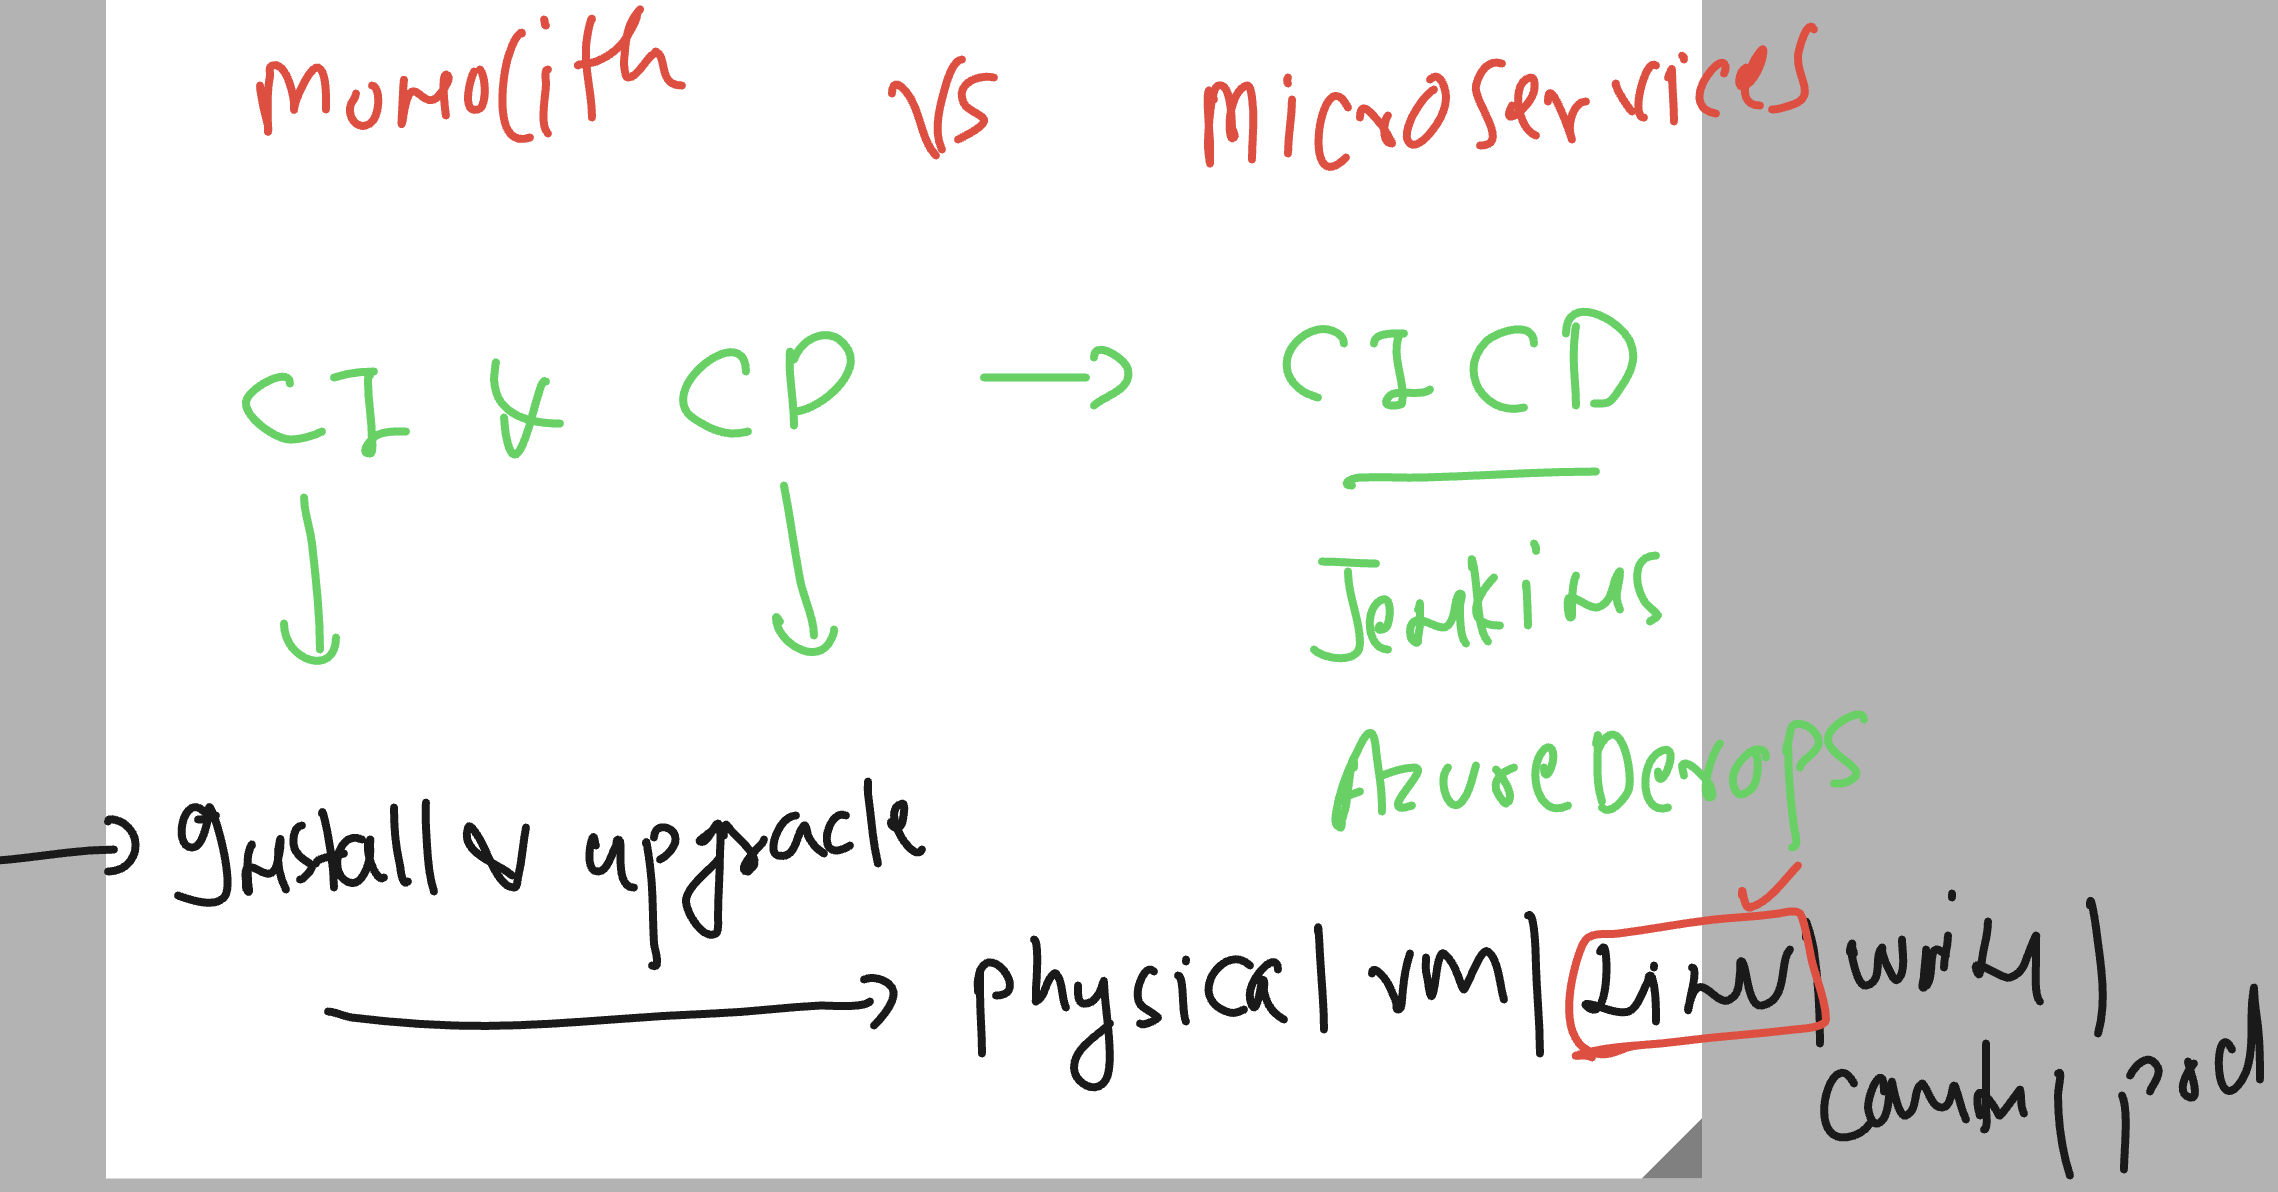 Monolith vs Microservices
CI & CD → CICD
Jenkins
Azure Devops
→ Install & upgrade
→ physical / vm / Linu / win /
/ pod